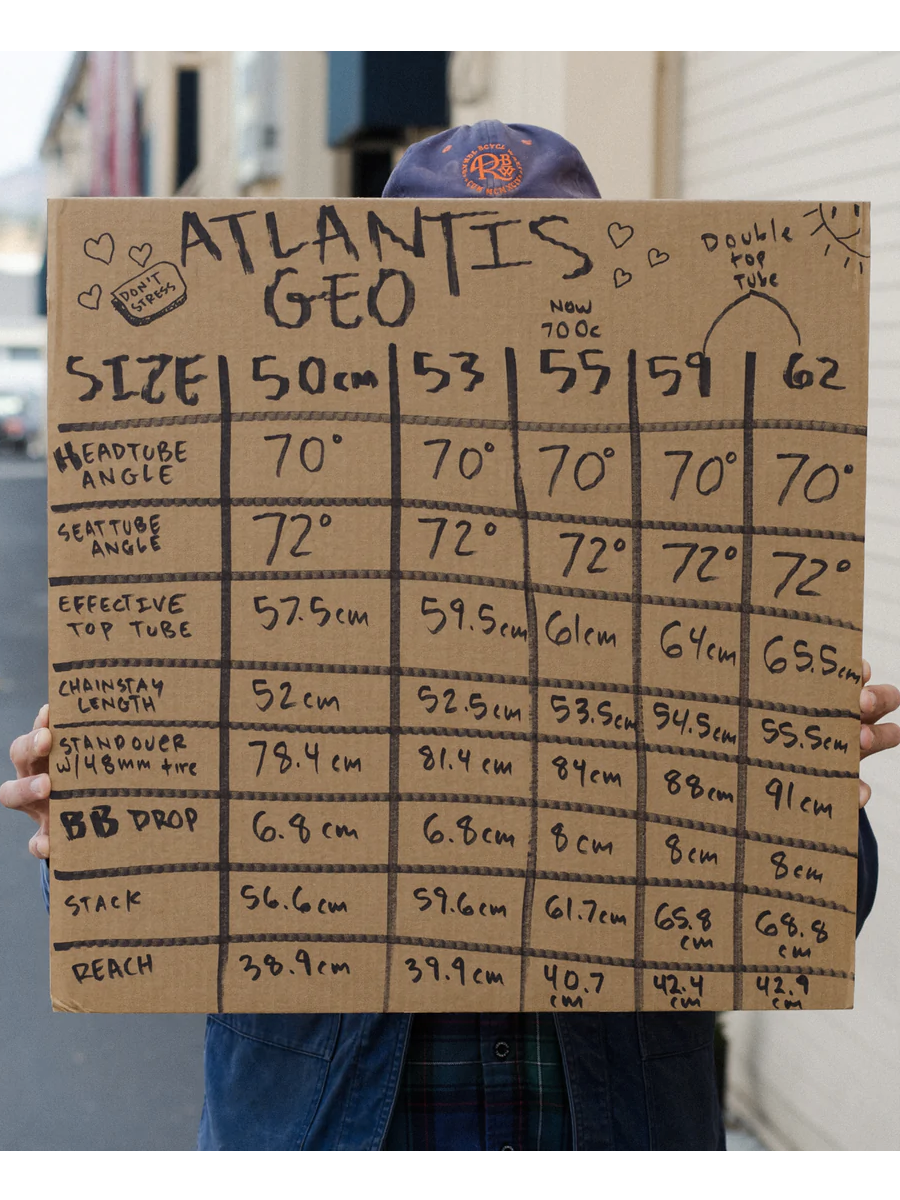 RBW
ATLANTIS
GEO
DON'T
STRESS
Double
top
Tube
NOW
700c
SIZE 50cm 53 55 59 62
HEADTUBE
ANGLE 70° 70° 70° 70° 70°
SEATTUBE
ANGLE 72° 72° 72° 72° 72°
EFFECTIVE
TOP TUBE 57.5cm 59.5cm 61cm 64cm 65.5cm
CHAINSTAY
LENGTH 52cm 52.5cm 53.5cm 54.5cm 55.5cm
STANDOVER
w/48mm tire 78.4cm 81.4cm 84cm 88cm 91cm
BB DROP 6.8cm 6.8cm 8cm 8cm 8cm
STACK 56.6cm 59.6cm 61.7cm 65.8 cm 68.8 cm
REACH 38.9cm 39.9cm 40.7 cm 42.4 cm 42.9 cm